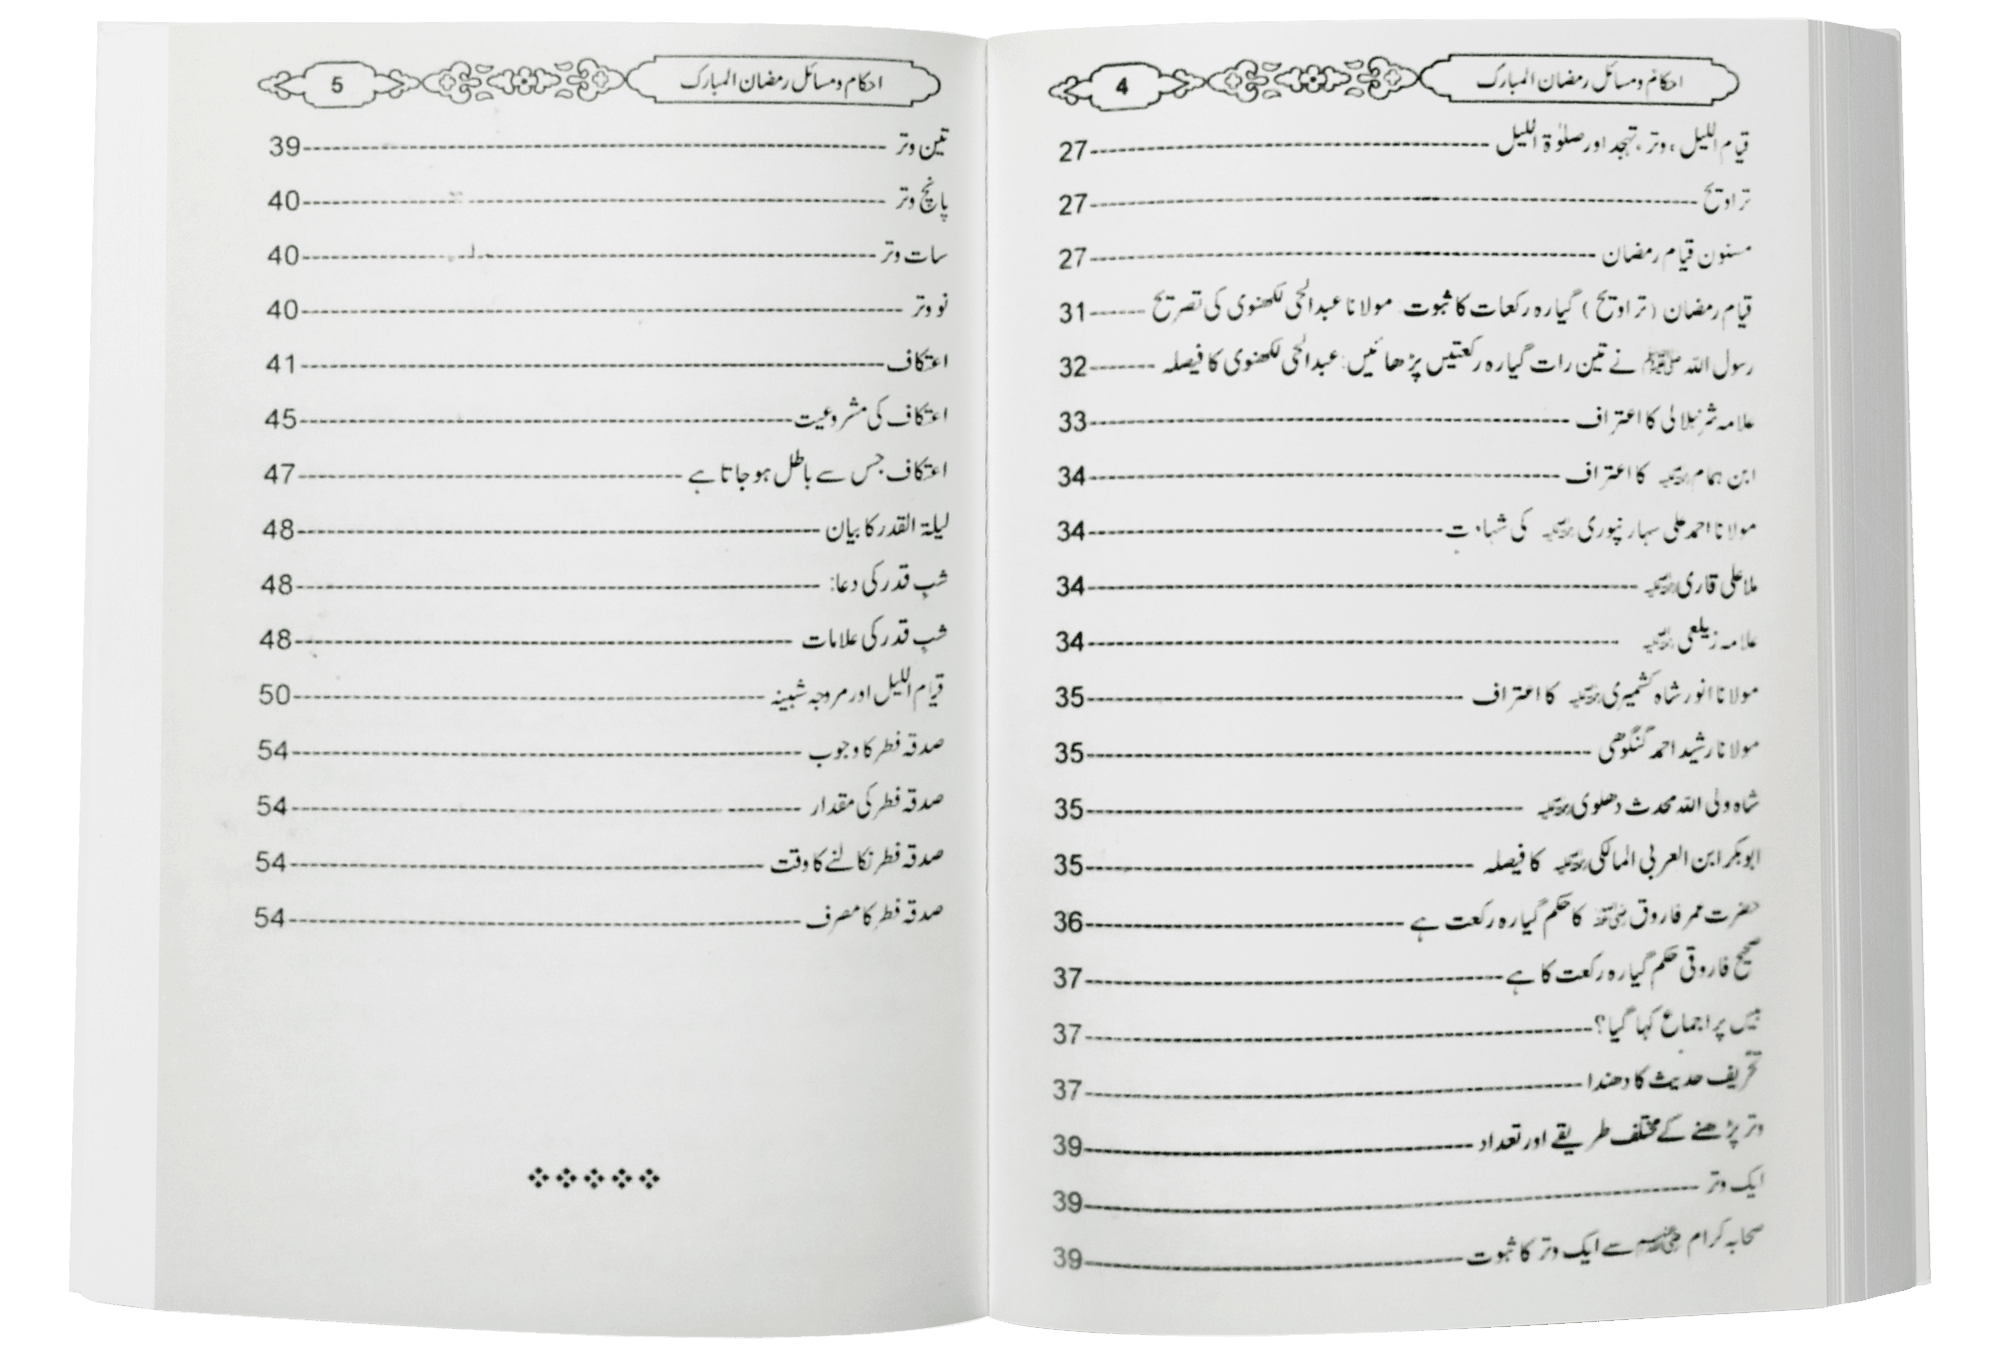 احکام و مسائل رمضان المبارک 4
قیام اللیل، وتر، تہجد اور صلوٰۃ اللیل 27
تراویح 27
مسنون قیام رمضان 27
قیام رمضان (تراویح) گیارہ رکعات کا ثبوت مولانا عبدالحئ لکھنوی کی تصریح 31
رسول اللہ ﷺ نے تین رات گیارہ رکعتیں پڑھائیں: عبدالحئ لکھنوی کا فیصلہ 32
علامہ شرنبلالی کا اعتراف 33
ابن ہمام رحمۃ اللہ علیہ کا اعتراف 34
مولانا احمد علی سہارنپوری رحمۃ اللہ علیہ کی شہادت 34
ملا علی قاری رحمۃ اللہ علیہ 34
علامہ زیلعی رحمۃ اللہ علیہ 34
مولانا انور شاہ کشمیری رحمۃ اللہ علیہ کا اعتراف 35
مولانا رشید احمد گنگوھی 35
شاہ ولی اللہ محدث دھلوی رحمۃ اللہ علیہ 35
ابوبکر ابن العربی المالکی رحمۃ اللہ علیہ کا فیصلہ 35
حضرت عمر فاروق رضی اللہ عنہ کا حکم گیارہ رکعت ہے 36
صحیح فاروقی حکم گیارہ رکعت کا ہے 37
بیس پر اجماع کہا گیا؟ 37
تحریف حدیث کا دھندا 37
وتر پڑھنے کے مختلف طریقے اور تعداد 39
ایک وتر 39
صحابہ کرام رضی اللہ عنہم سے ایک وتر کا ثبوت 39
احکام و مسائل رمضان المبارک 5
تین وتر 39
پانچ وتر 40
سات وتر 40
نو وتر 40
اعتکاف 41
اعتکاف کی مشروعیت 45
اعتکاف جس سے باطل ہو جاتا ہے 47
لیلۃ القدر کا بیان 48
شب قدر کی دعا: 48
شب قدر کی علامات 48
قیام اللیل اور مروجہ شبینہ 50
صدقہ فطر کا وجوب 54
صدقہ فطر کی مقدار 54
صدقہ فطر نکالنے کا وقت 54
صدقہ فطر کا مصرف 54